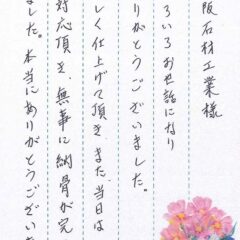 阪石材工業様
ろいろお世話になり
りがとうございました。
しく仕上げて頂きまた、当日は
対応頂き、無事に納骨が完
ました。本当にありがとうござい